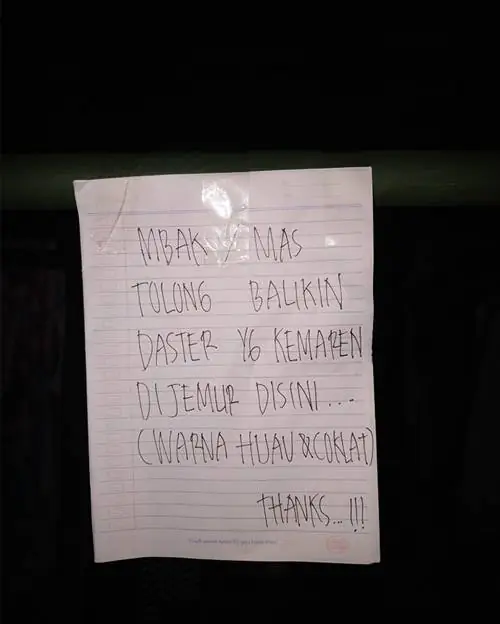 MBAK / MAS
TOLONG BALIKIN
DASTER YG KEMAREN
DI JEMUR DISINI ...
(WARNA HIJAU & COKLAT)
THANKS...!!!